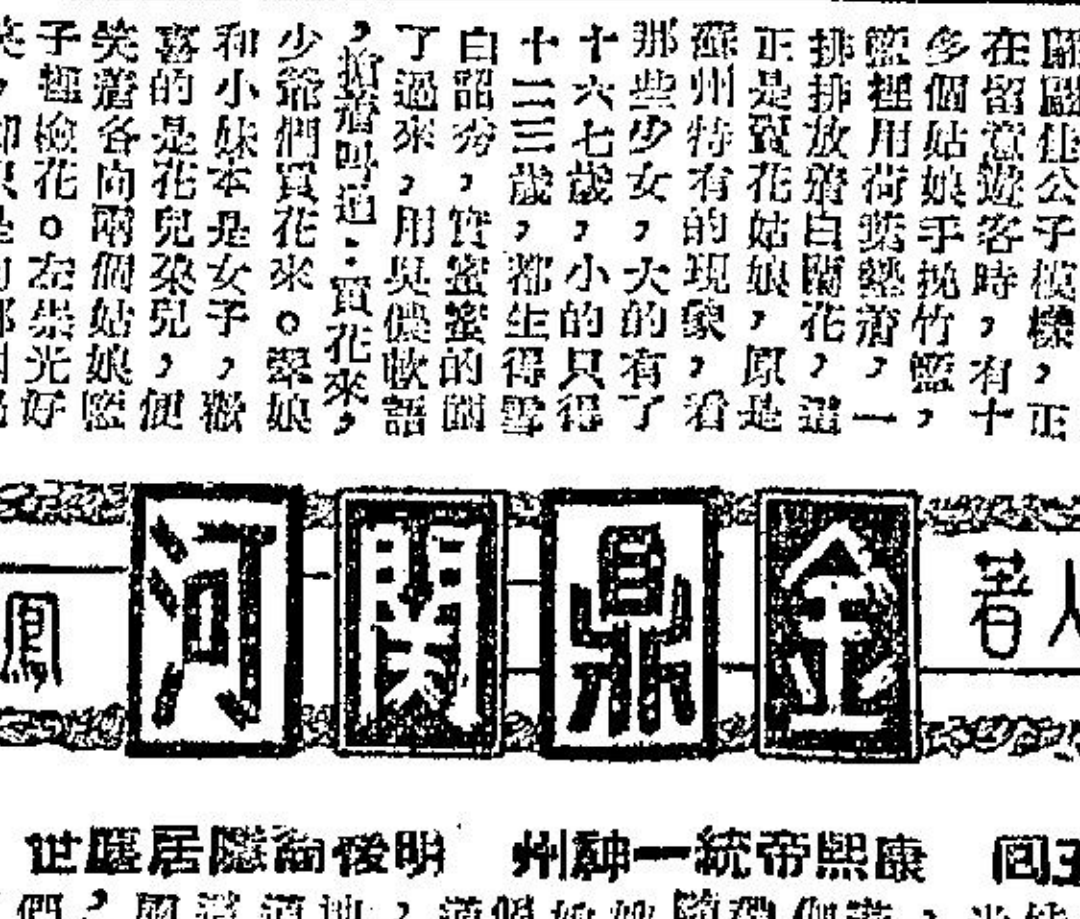 儼儼佳公子模樣，正
在留意遊客時，有十
多個姑娘手挽竹籃，
籃裡用荷葉墊着，一
排排放着白蘭花，這
正是賣花姑娘，原是
蘇州特有的現象，看
那些少女，大的有了
十六七歲，小的只得
十二三歲，都生得雪
白韶秀，實蜜蜜的圍
了過來，用吳儂軟語
，搶着叫道：買花來，
少爺們買花來。翠娘
和小妹本是女子，歡
喜的是花兒朵兒，便
笑着各向兩個姑娘籃
子裡檢花。左崇光好
人著
金鼎閣河
鳳
康熙帝統一神州
明後裔隱居塵世